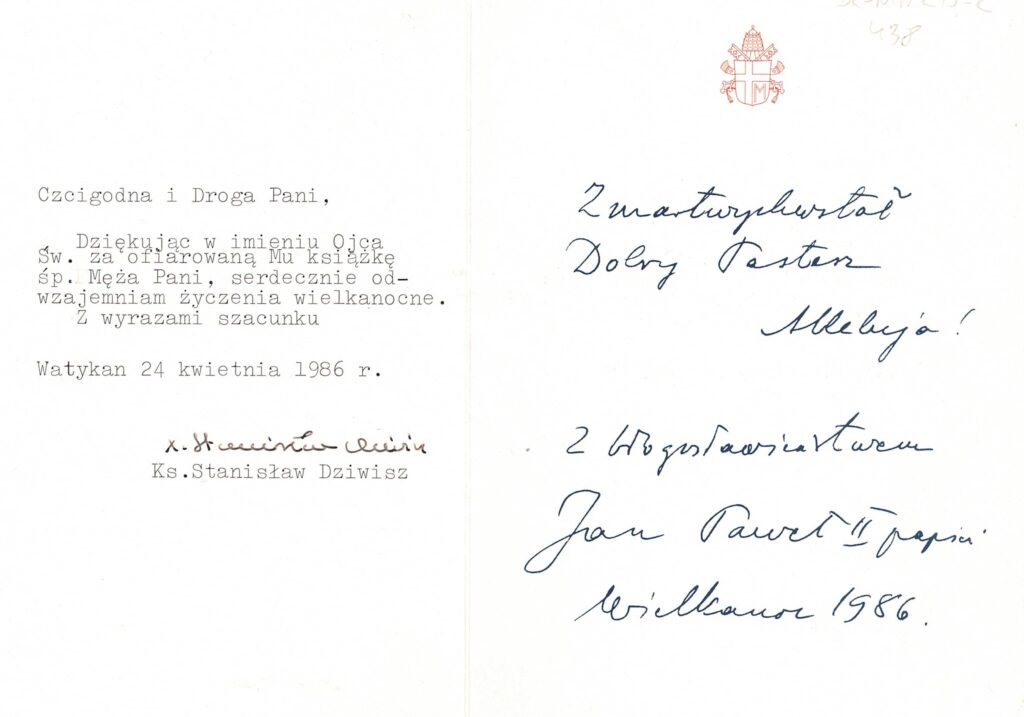 438
Czcigodna i Droga Pani,
Dziękując w imieniu Ojca
Św. za ofiarowaną Mu książkę
śp. Męża Pani, serdecznie od-
wzajemniam życzenia wielkanocne.
Z wyrazami szacunku
Watykan 24 kwietnia 1986 r.
x. Stanisław Dziwisz
Ks.Stanisław Dziwisz
M
Zmartwychwstał
Dobry Pasterz
Alleluja!
Z błogosławieństwem
Jan Paweł II papież
Wielkanoc 1986.